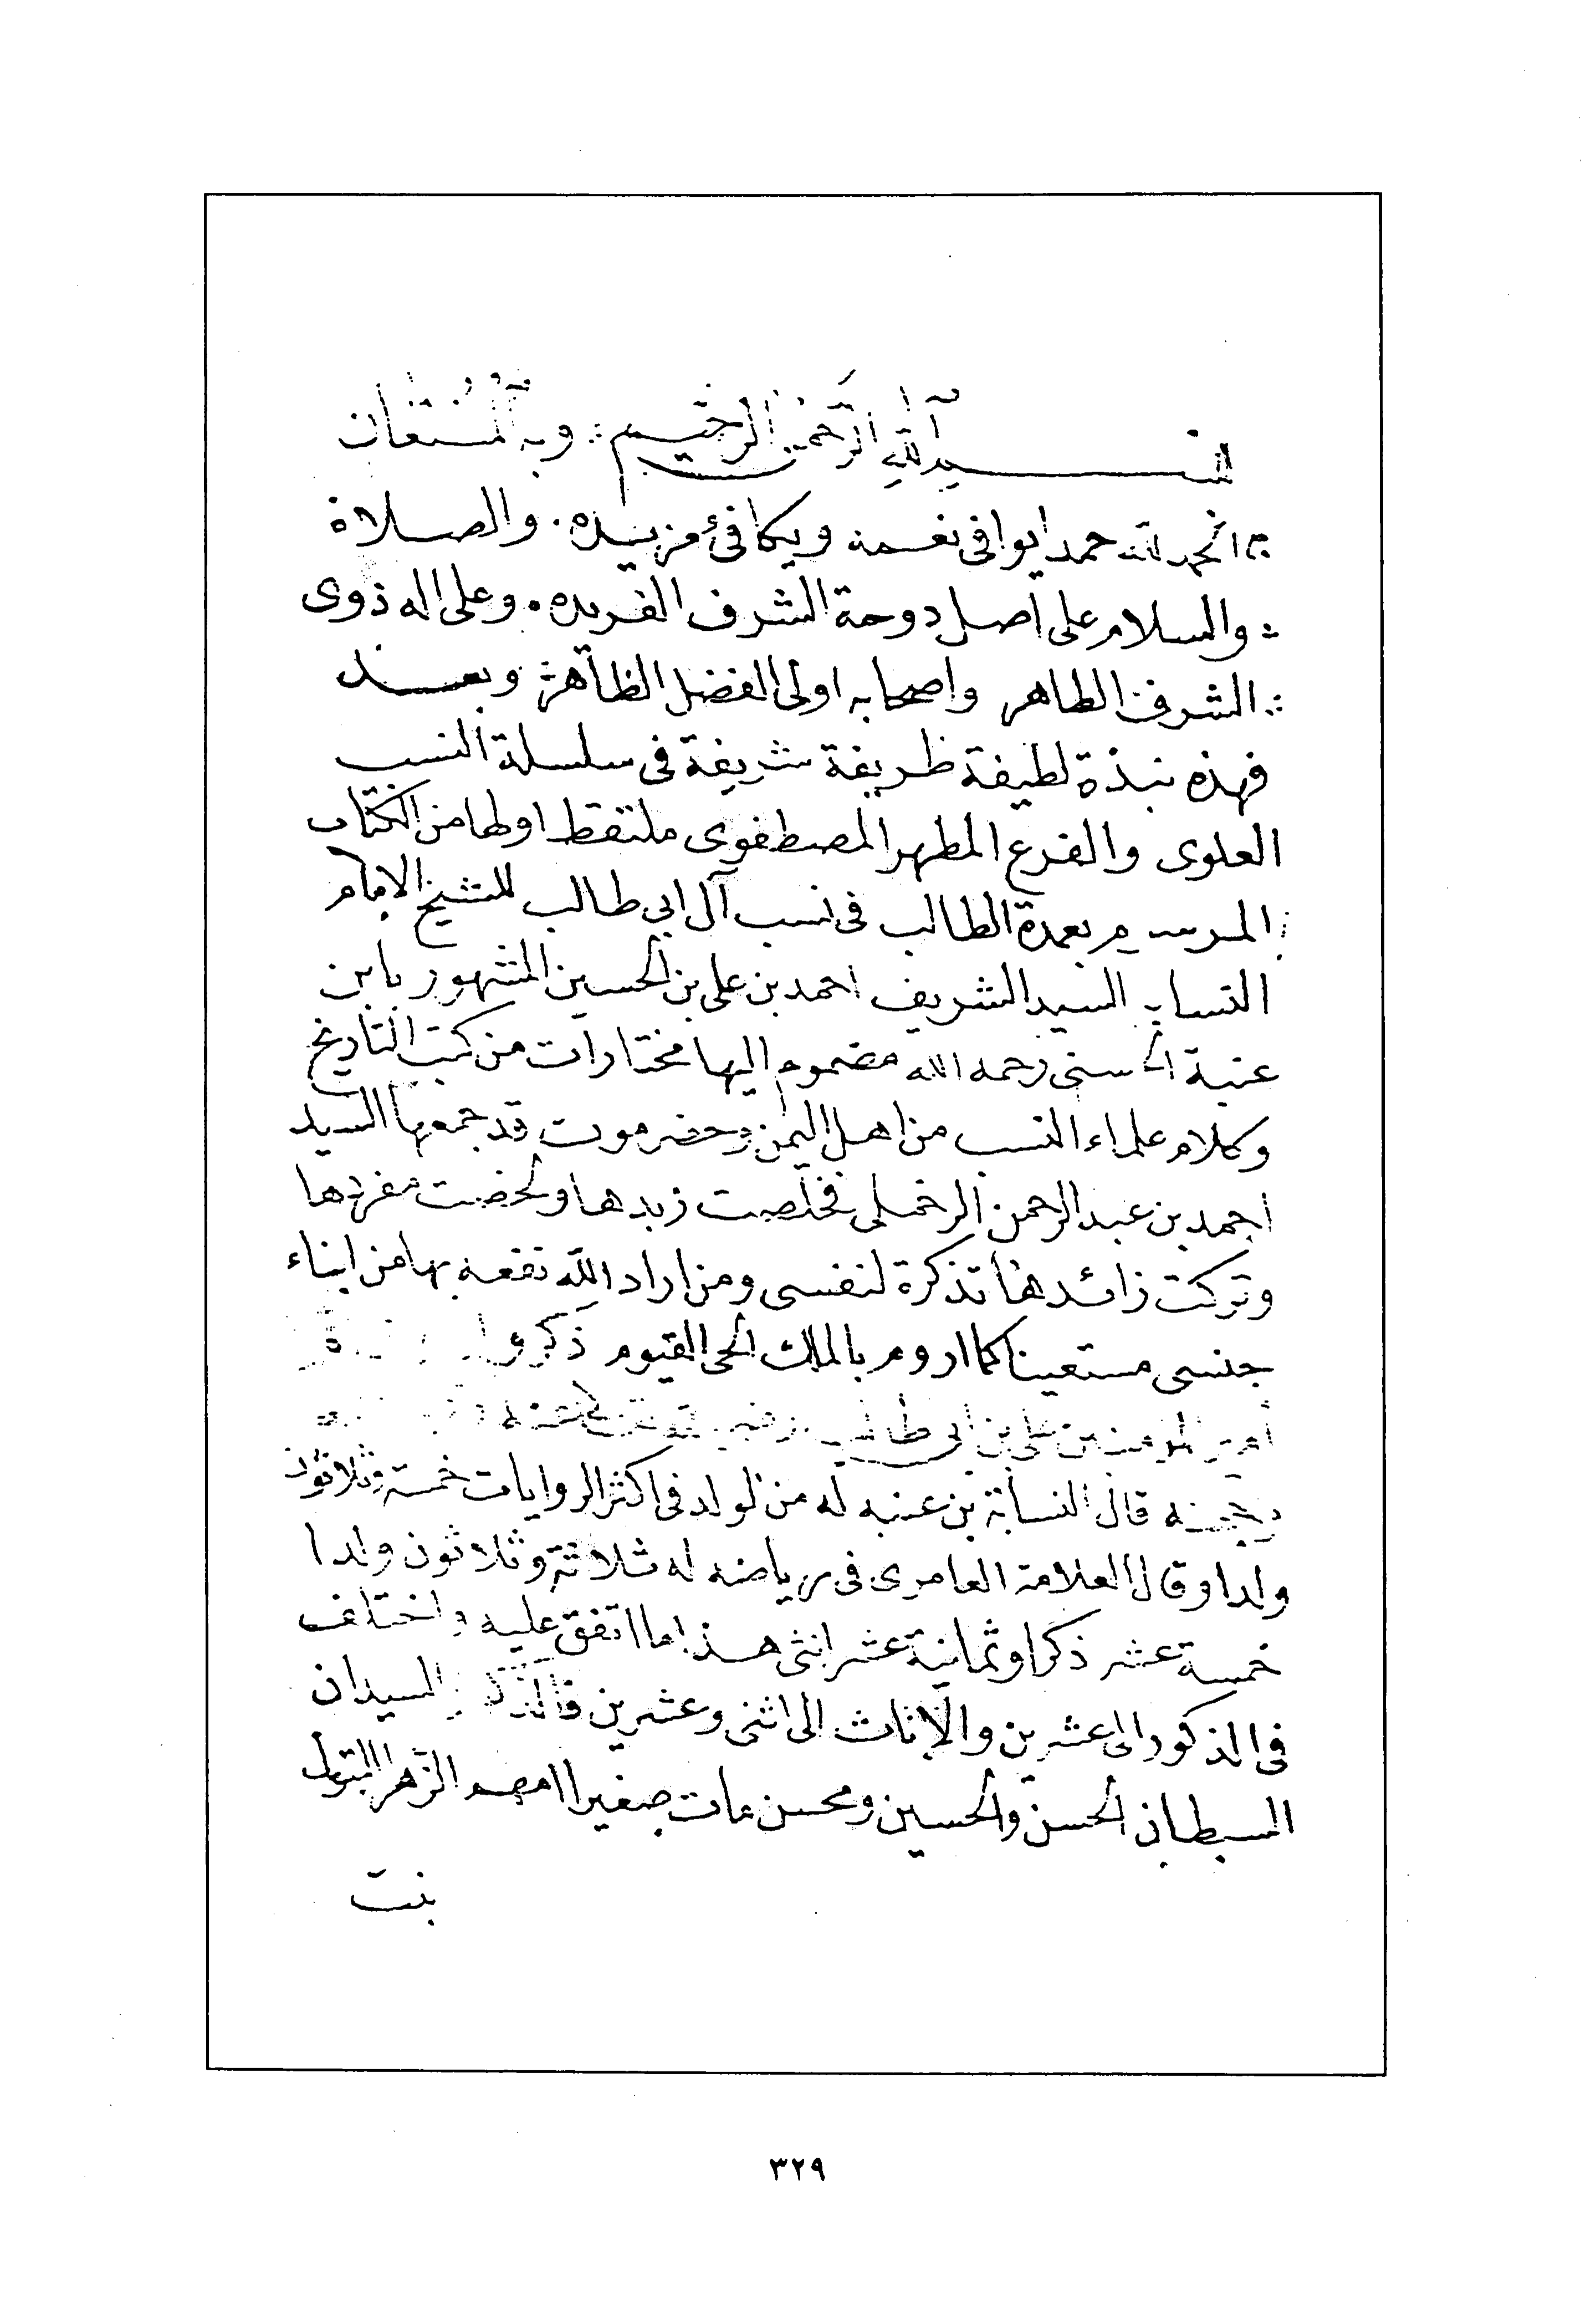 بسم الله الرحمن الرحيم وبه المستعان
الحمد لله حمدا يوافى نعمه ويكافئ مزيده . والصلاة
والسلام على اصل دوحة الشرف الفريده . وعلى اله ذوى
الشرف الطاهر واصحابه اولى الفضل الظاهر وبعد
فهذه نبذة لطيفة ظريفة شريفة فى سلسلة النسب
العلوى والفرع المطهر المصطفوى ملتقط اولها من الكتاب
المرسوم بعمدة الطالب فى نسب آل ابى طالب للشيخ الامام
النسابه السيد الشريف احمد بن على بن الحسين المشهور بابن
عنبة الحسنى رحمه الله مضموم اليها مختارات من كتب التاريخ
وكلام علماء النسب من اهل اليمن وحضرموت قد جمعها السيد
احمد بن عبد الرحمن فخلصت زبدها ولخصت مفردها
وتركت زائدها تذكرة لنفسى ومن اراد الله نفعه بها من ابناء
جنسى مستعينا كما اروم بالملك الحى القيوم ذكر
أمير المومنين على بن ابى طالب
قال النسابة بن عنبه له من الولد فى اكثر الروايات خمسة وثلاثون
ولدا وقال العلامة العامرى فى رياضه له ثلاثة وثلاثون ولدا
خمسة عشر ذكرا وثمانية عشر انثى هذا ما اتفق عليه واختلف
فى الذكور الى عشرين والاناث الى اثنى وعشرين السيدان
السبطان الحسن والحسين ومحسن مات صغيرا امهم الزهرا البتول
بنت
٣٢٩